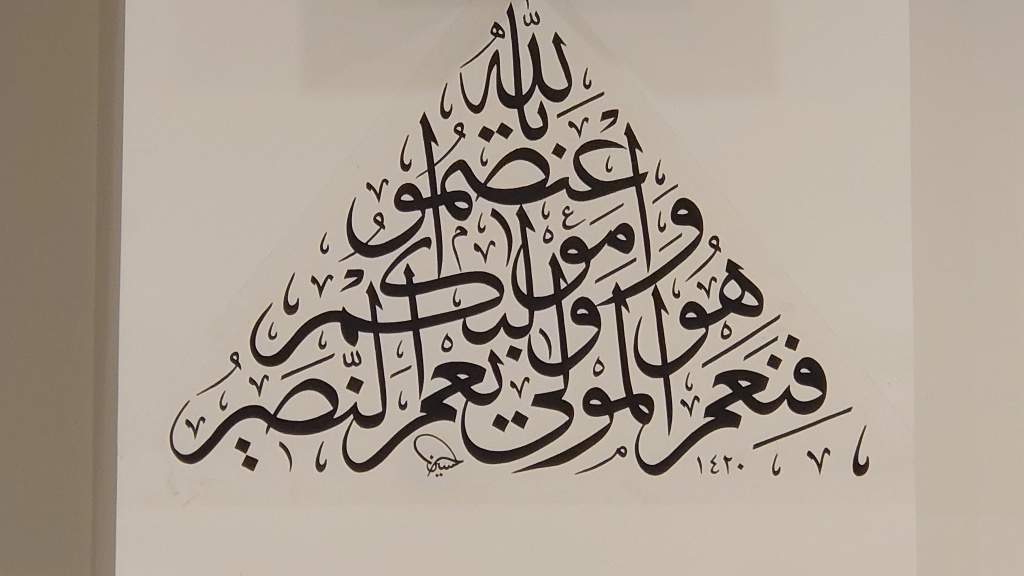 وَاعْتَصِمُوا بِاللَّهِ
هُوَ مَوْلَاكُمْ
فَنِعْمَ الْمَوْلَى وَنِعْمَ النَّصِيرُ
١٤٢٠